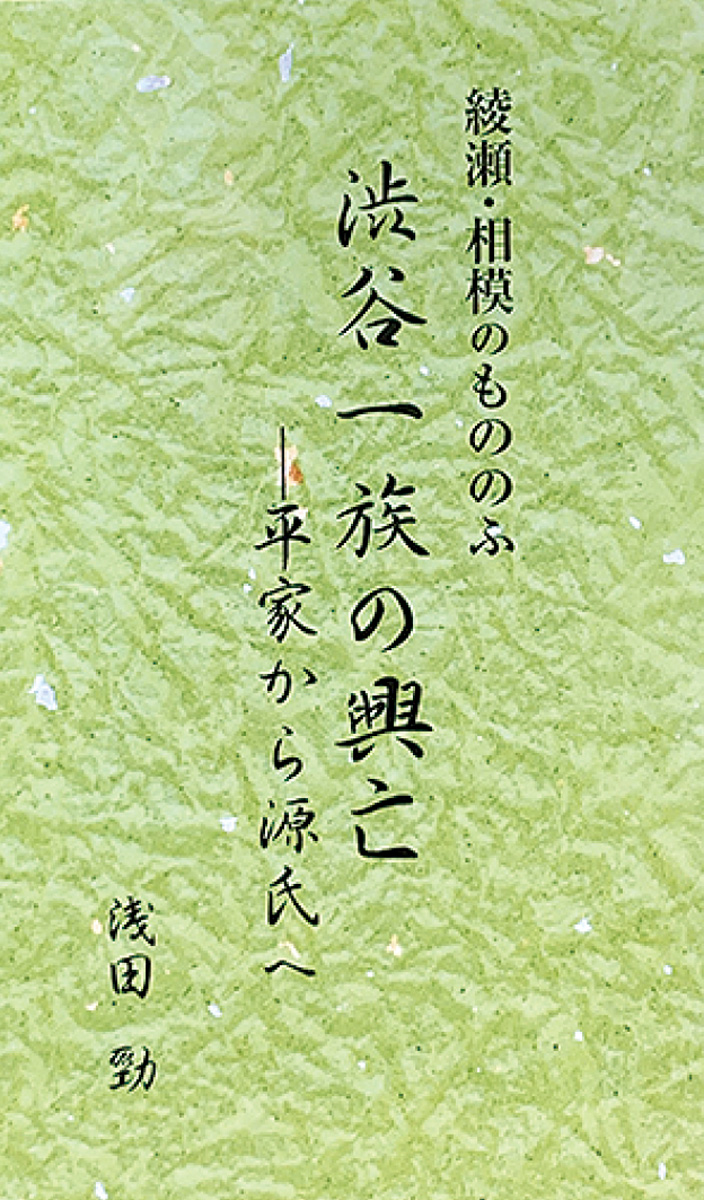 綾瀬・相模のもののふ
渋谷一族の興亡
―平家から源氏へ
浅田 勁